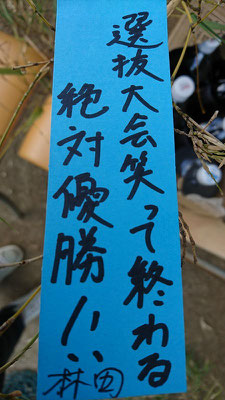 選抜大会笑って終わる
絶対優勝!!
林田